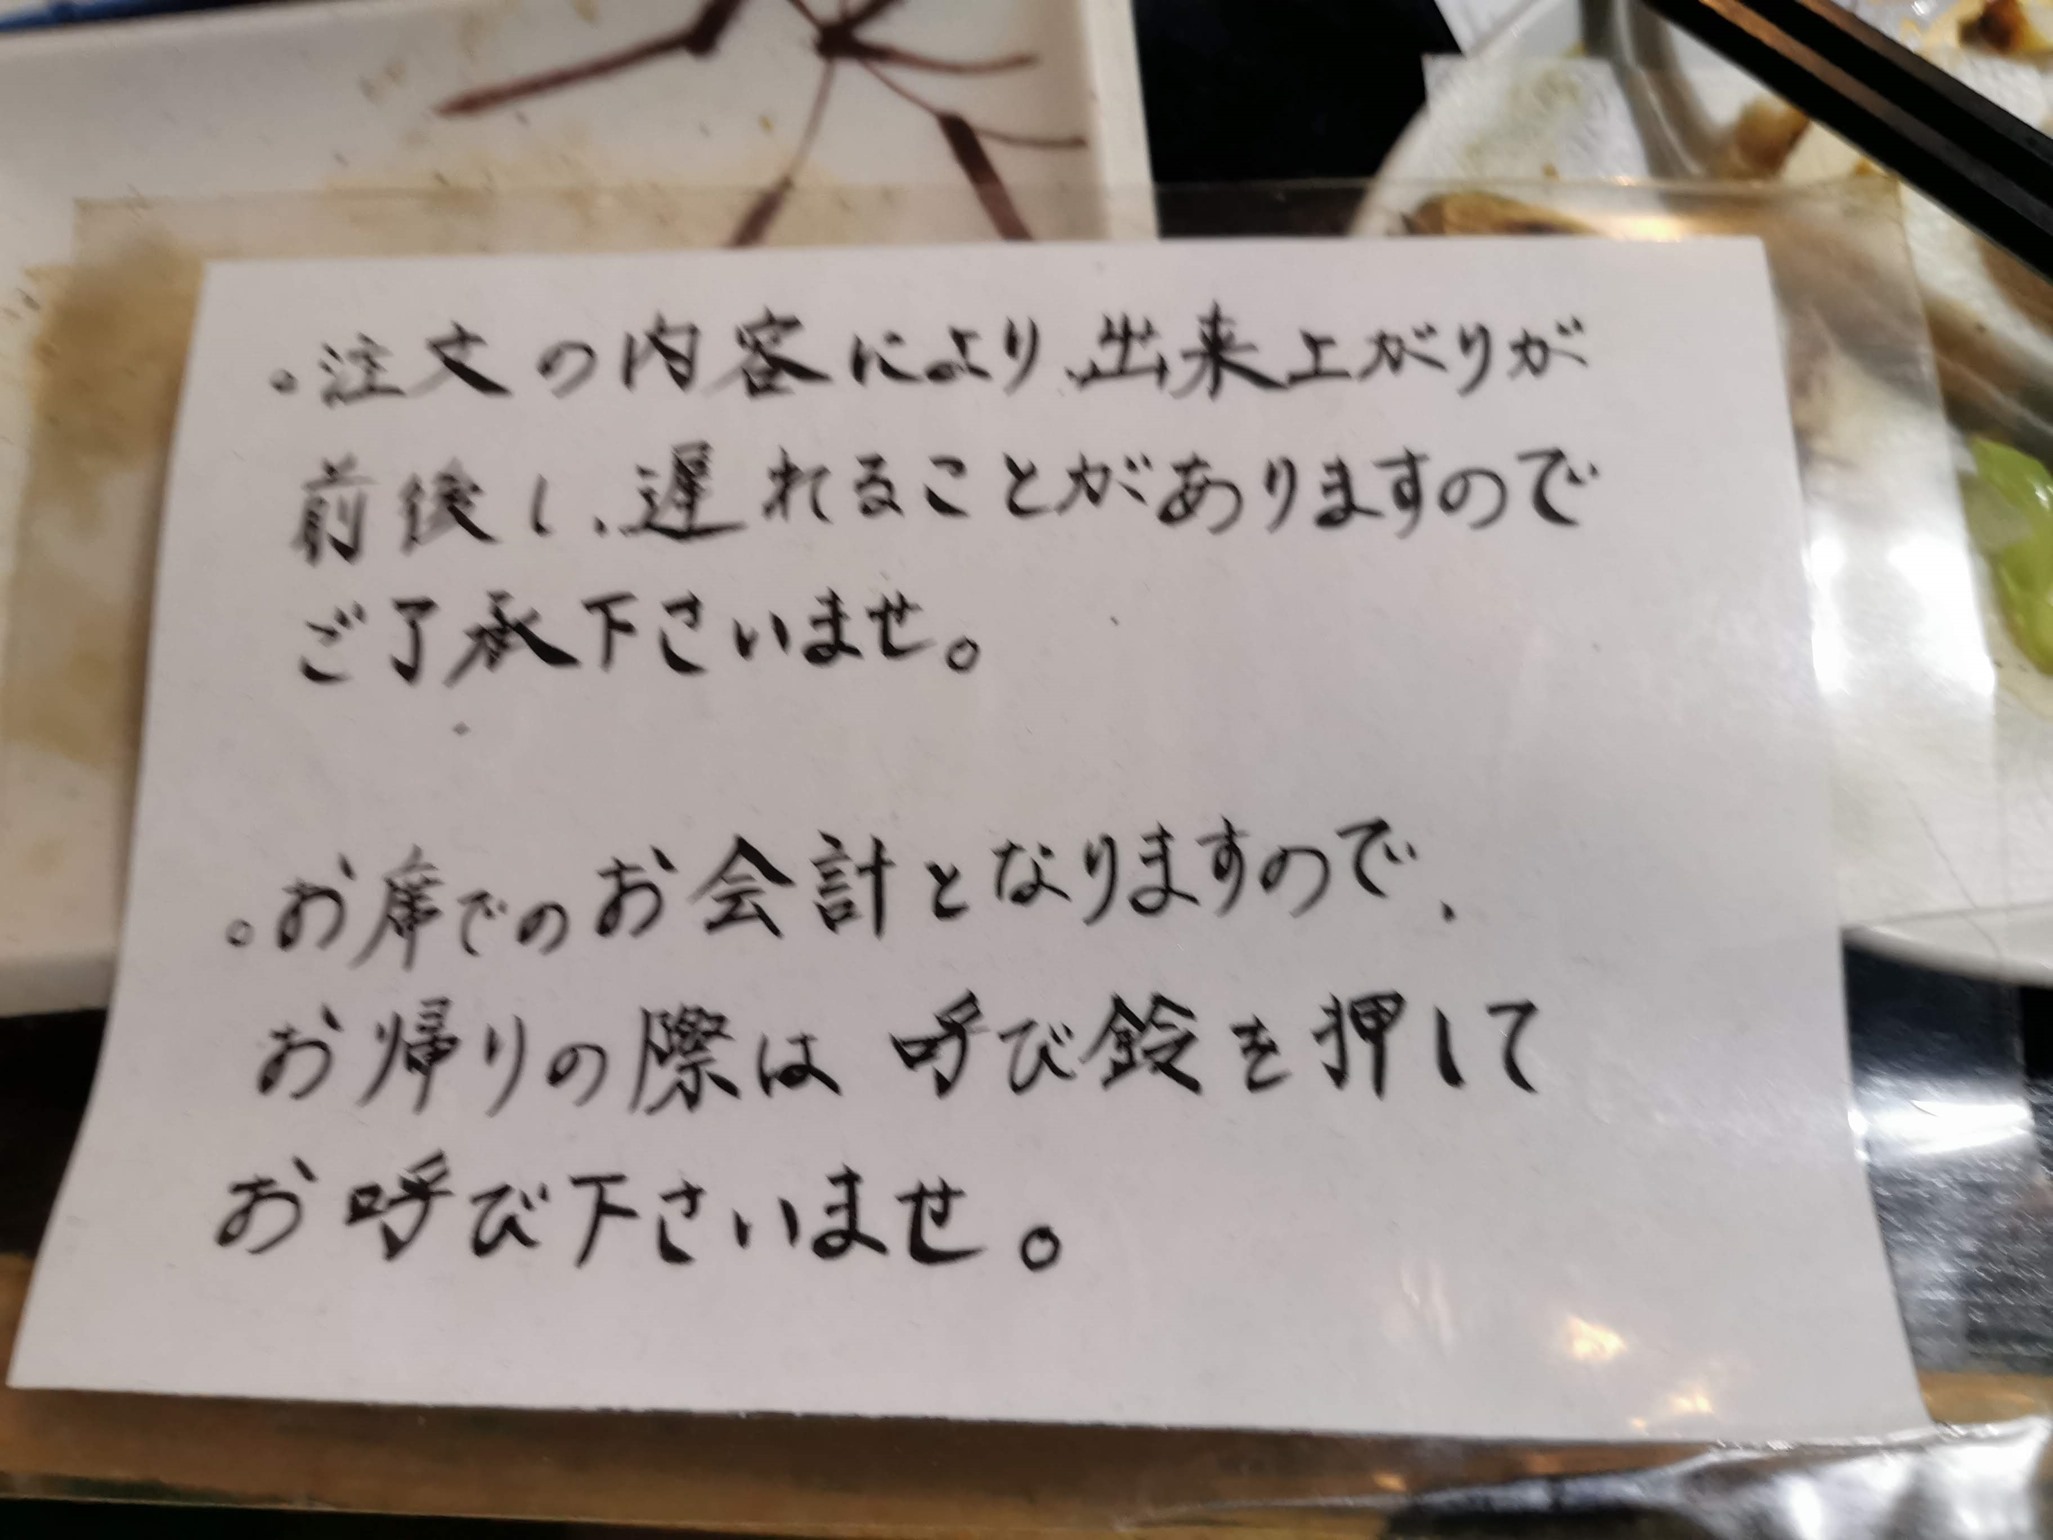 。注文の内容により、出来上がりが
前後し、遅れることがありますので
ご了承下さいませ。
。お席でのお会計となりますので、
お帰りの際は 呼び鈴を押して
お呼び下さいませ。